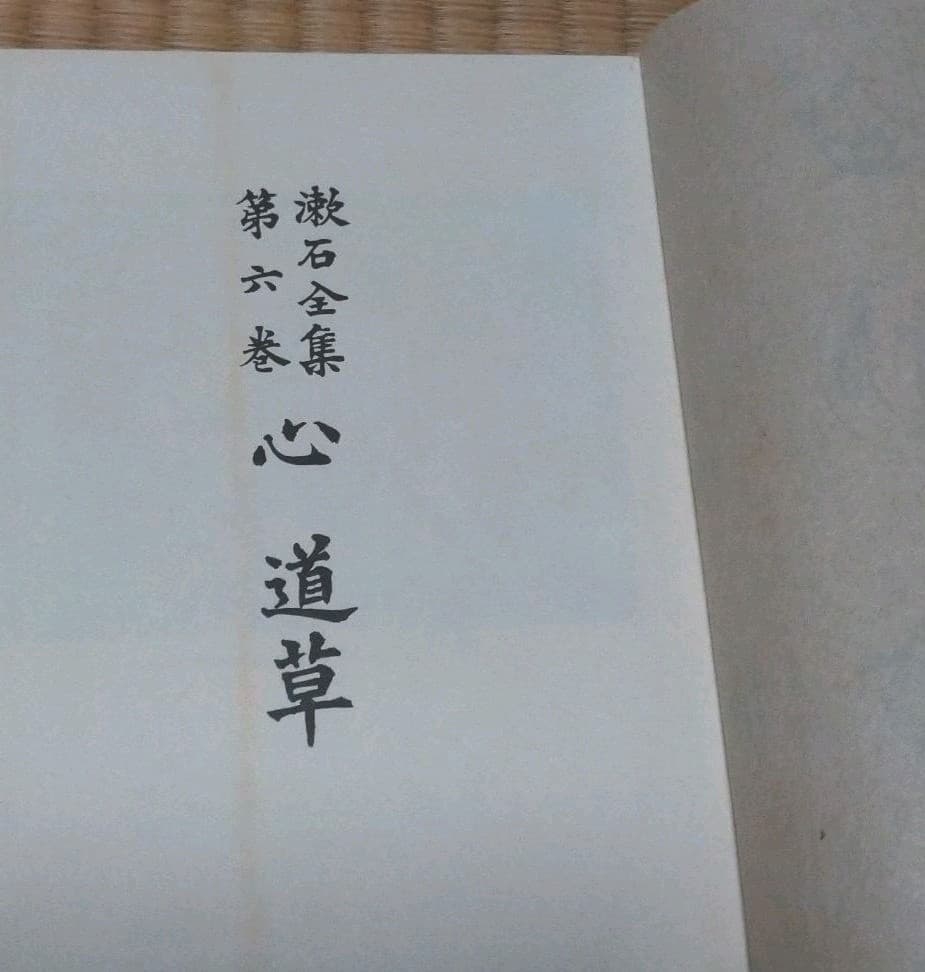 漱石全集
第六巻
心 道草